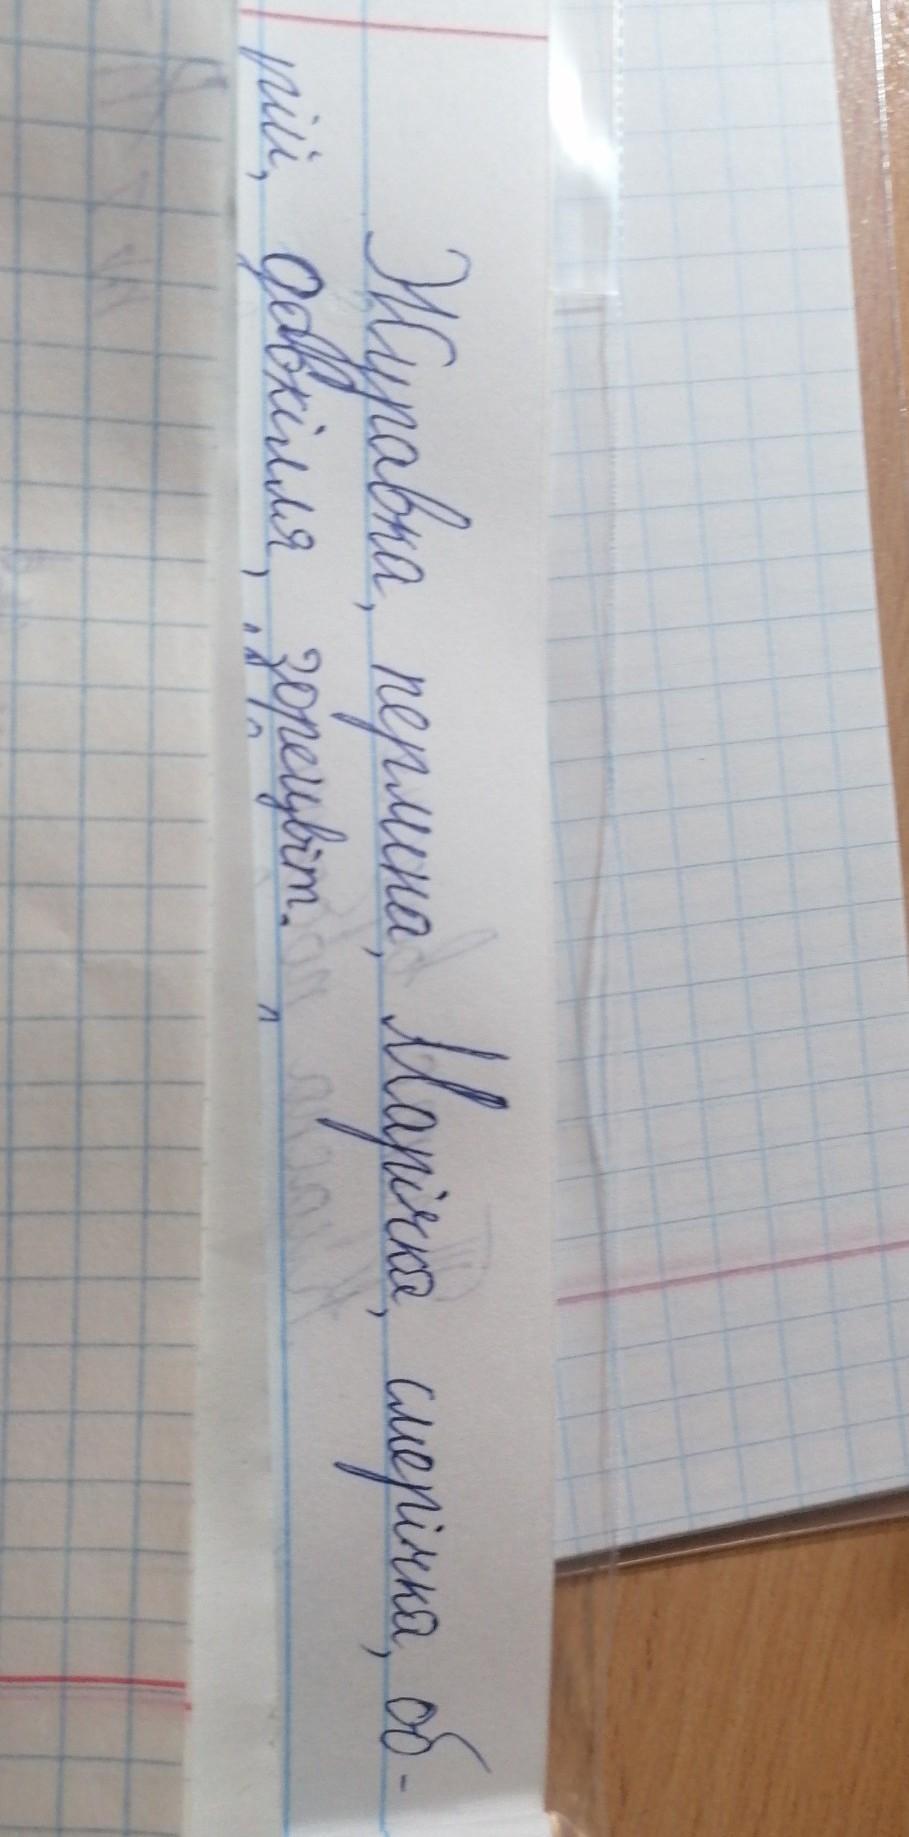 Журавка, перлина, Марічка, смерічка, об-
рії, довкілля, горецвіт.